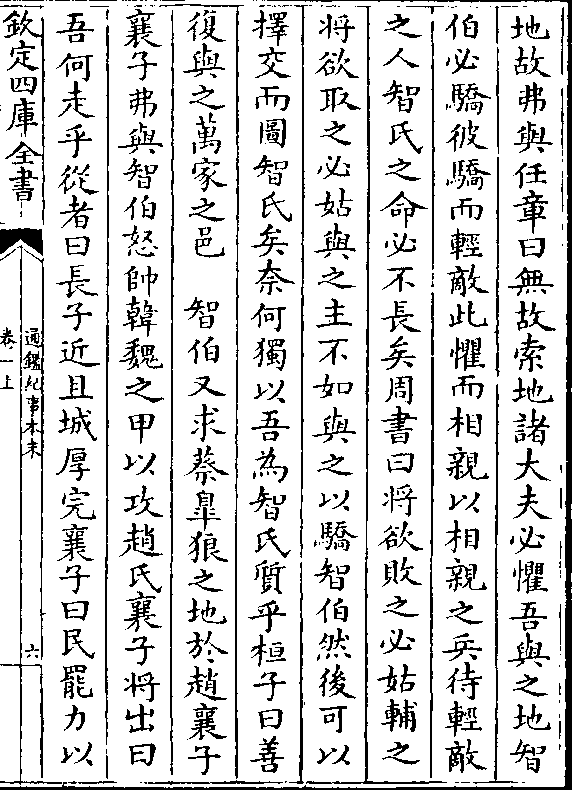 地故弗與任章曰無故索地諸大夫必懼吾與之地智
伯必驕彼驕而輕敵此懼而相親以相親之兵待輕敵
之人智氏之命必不長矣周書曰將欲敗之必姑輔之
將欲取之必姑與之主不如與之以驕智伯然後可以
擇交而圖智氏矣柰何獨以吾為智氏質乎桓子曰善
復與之萬家之邑　智伯又求蔡臯狼之地於趙襄子
襄子弗與智伯怒帥韓魏之甲以攻趙氏襄子將出曰
吾何走乎從者曰長子近且城厚完襄子曰民罷力以
欽定四庫全書
通鑑紀事本末
卷一上
六